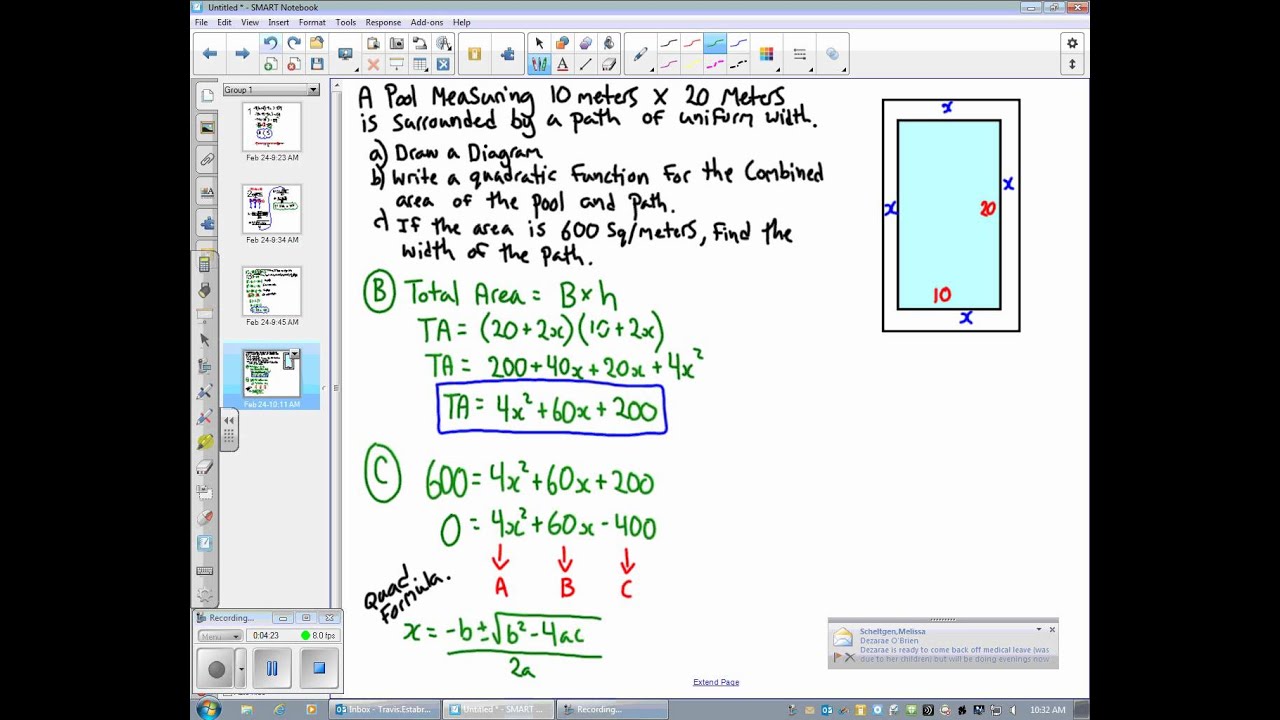 Untitled * - SMART Notebook
File Edit View Insert Format Tools Response Add-ons Help
Group 1
Feb 24-9:23 AM
Feb 24-9:34 AM
Feb 24-9:45 AM
Feb 24-10:11 AM
A Pool Measuring 10 meters X 20 Meters
is Surrounded by a path of uniform width.
a) Draw a Diagram
b) Write a quadratic Function For the Combined
area of the pool and path.
c) If the area is 600 Sq/meters, Find the
width of the path.
x
x
x
20
10
x
B Total Area = B × h
TA = (20 + 2x)(10 + 2x)
TA = 200 + 40x + 20x + 4x²
TA = 4x² + 60x + 200
C 600 = 4x² + 60x + 200
0 = 4x² + 60x - 400
A B C
Quad
Formula.
x = -b ± √b² - 4ac
2a
Recording...
Menu
0:04:23
8.0 fps
Scheltgen,Melissa
Dezarae O'Brien
Dezarae is ready to come back off medical leave (was
due to her children) but will be doing evenings now
Extend Page
Inbox - Travis.Estabr...
Untitled * - SMART ...
Recording...
10:32 AM